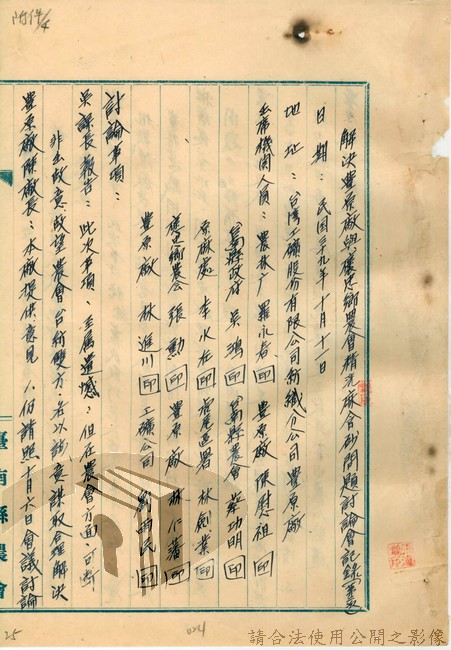 附件4
解決豐原廠與褒忠鄉農會精洗麻含砂問題討論會記錄
日期：民國三九年十月十一日
地址：台灣工礦股份有限公司紡織分公司豐原廠
出席機關人員：農林廳 羅永春 印 豐原廠 陳慰祖 印
縣政府 吳鴻 印 縣農會 蔡功明 印
麻處 李水 印 虎尾區署 林劍業 印
褒忠鄉農會 張勳 印 豐原廠 林仁藩 印
豐原廠 林進川 印 工礦公司 劉雨民 印
討論事項：
吳課長報告：此次事項、至屬遺憾：但在農會方面、可斷
非出故意故望農會台紡雙方、各以誠意謀取合理解決
豐原廠陳廠長：本廠提供意見 1.仍請照十月六日會議討論
臺南縣農會
25
024
請合法使用公開之影像